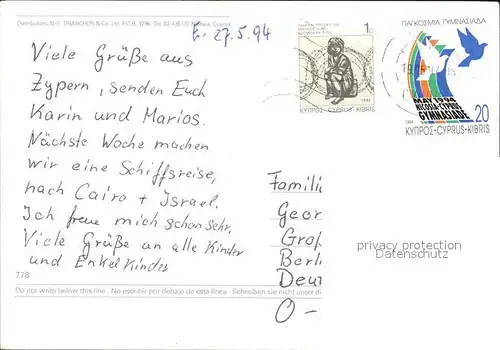 Distributors: N.G. TRIARCHOS N Co. Ltd. P.O.B. 1296, Tel. 02-435 Nicosia, Cyprus
E. 27.5.94
Viele Grüße aus
Zypern, senden Euch
Karin und Marios.
Nächste Woche machen
wir eine Schiffsreise,
nach Cairo + Israel.
Ich freue mich schon sehr.
Viele Grüße an alle Kinder
und Enkelkinder
778
Do not write below this line - No escribir por debajo de esta línea - Schreiben sie nicht unter di
1c
1991
ΚΥΠΡΟΣ-CYPRUS-KIBRIS
ΠΑΓΚΟΣΜΙΑ ΓΥΜΝΑΣΙΑΔΑ
MAY 1994
NICOSIA-CYPRUS
GYMNASIADE
1994
20
ΚΥΠΡΟΣ-CYPRUS-KIBRIS
Famili
Geor
Grof
Berli
Deut
O-
privacy protection
Datenschutz